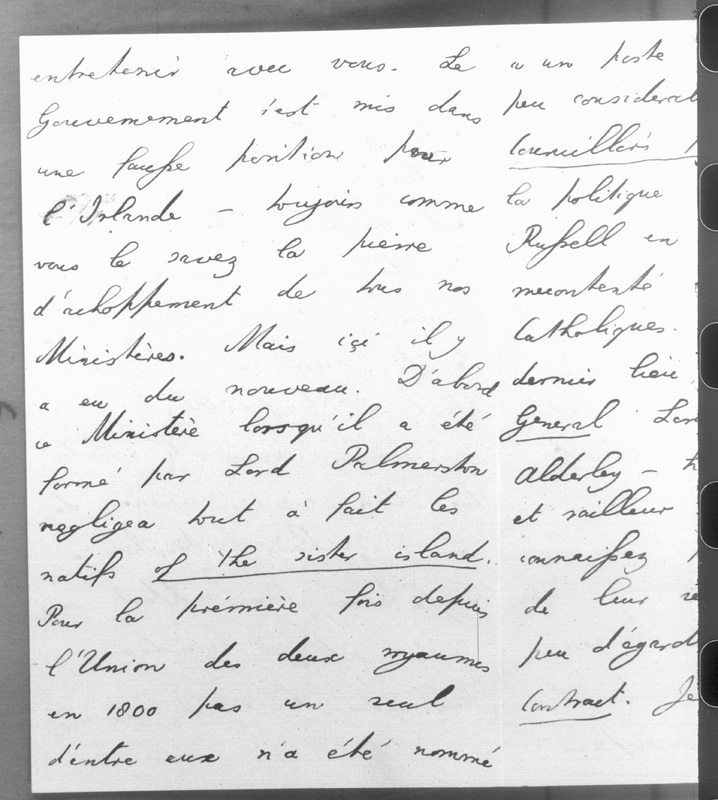 entretenir avec vous. Le
Gouvernement s'est mis dans
une fausse position pour
l'Irlande — toujours comme
vous le savez la pierre
d'achoppement de tous nos
Ministères. Mais içi il y
a eu du nouveau. D'abord
ce Ministère lorsqu'il a été
formé par Lord Palmerston
negligea tout à fait les
natifs of the sister island.
Pour la prémière fois depuis
l'Union des deux royaumes
en 1800 pas un seul
d'entre eux n'a été nommé
a un poste
peu considerab
Conseillers
la politique
Russell en
mecontenté
Catholiques.
dernier lieu
General Lor
Alderley —
et railleur
connaissez
de leur
peu d'égard
Contract. Je